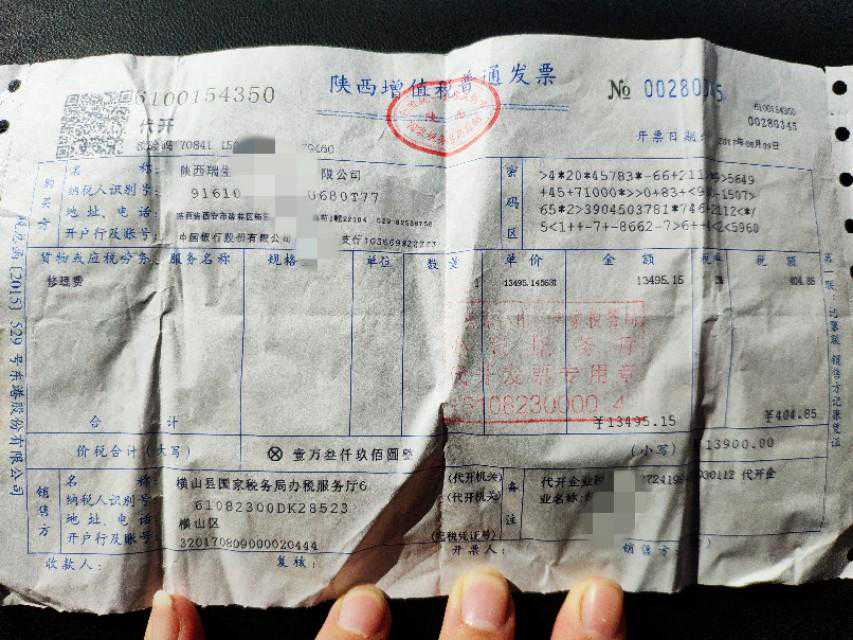 陕西增值税普通发票
6100154350
№ 00280345
6100154350
00280345
代开
开票日期：2017年08月09日
购买方
名 称：陕西瑞 限公司
纳税人识别号：91610 0680T77
地址、电话：
开户行及账号：中国银行股份有限公司 支行103669822273
密码区
>4*20*45783*-66+211 >5649
+45+71000*>>0+83+<9 -1507>
65*2>3904503781*746+2112<*/
5<1++-7+-8662-7>6+ <2<5960
货物或应税劳务、服务名称 规格 单位 数量 单价 金额 税率 税额
修理费 1 13495.145631 13495.15 3 404.85
合 计 ¥13495.15 ¥404.85
价税合计（大写） ⊗ 壹万叁仟玖佰圆整 （小写） 13900.00
代开发票专用章
销售方
名 称：横山县国家税务局办税服务厅6
纳税人识别号：61082300DK28523
地址、电话：横山区
开户行及账号：320170809000020444
(代开机关)
(代开机关)
(完税凭证号)
备注
代开企业税
业名称：
收款人：
复核：
开票人：
销售方：
第一联：记账联 销售方记账凭证